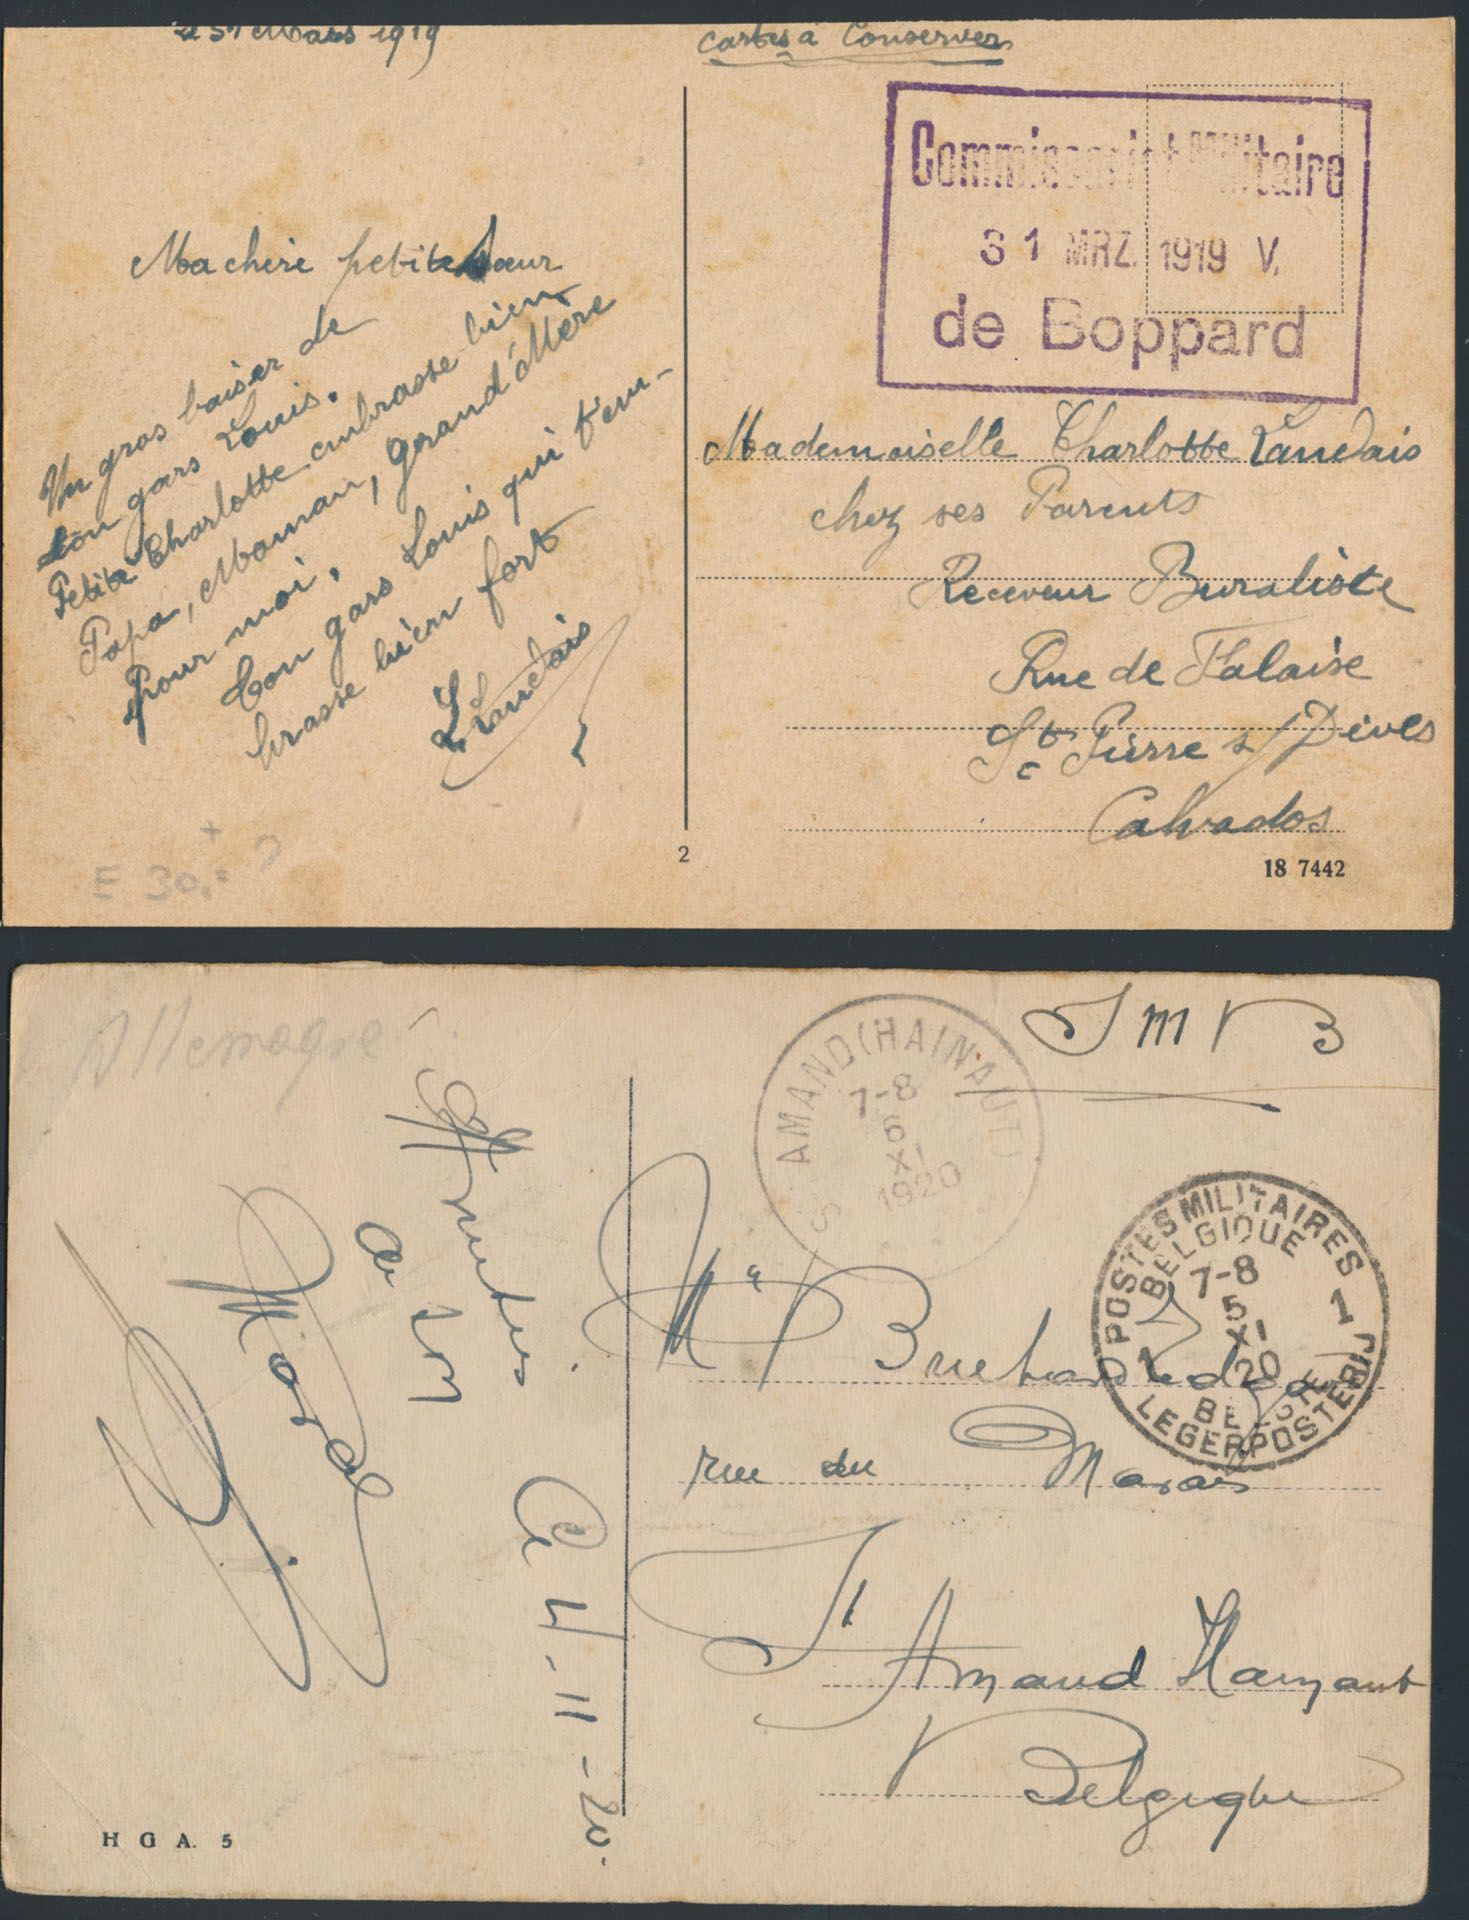 31 Mars 1919
Cartes à Conserver
Commissariat Militaire
31 MRZ. 1919 V.
de Boppard
Ma chère petite Sœur
Un gros baiser de
ton gars Louis.
Petite Charlotte embrasse bien
Papa, Maman, grand'Mère
pour moi.
Ton gars Louis qui t'em-
brasse bien fort
L. Landais
Mademoiselle Charlotte Landais
chez ses Parents
Receveur Buraliste
Rue de Falaise
St Pierre s/Dives
Calvados
E 30,-
2
18 7442
Allemagne
S M B
ST AMAND (HAINAUT)
7-8
6
XI
1920
POSTES MILITAIRES
BELGIQUE
7-8
5
XI
20
1 1
BELGIE
LEGERPOSTERIJ
Me
rue du Marais
St Amand Haynaut
Belgique
Marcel
Ce 4-11-20.
H G A. 5